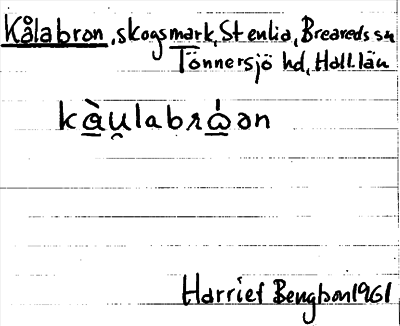 Kålabron, skogsmark, Stenlia, Breareds sn
Tönnersjö hd, Hall. län
kàu̯labrώən
Harriet Bengtson 1961